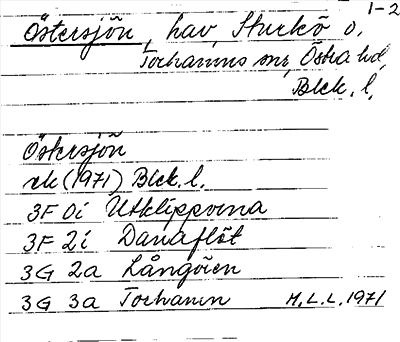 1-2
Östersjön, hav, Sturkö o.
Torhamns snr, Östra hd,
Blek. l.
Östersjön
rek (1971) Blek. l.
3F 0i Utklipporna
3F 2i Danaflöt
3G 2a Långören
3G 3a Torhamn M.L.L. 1971